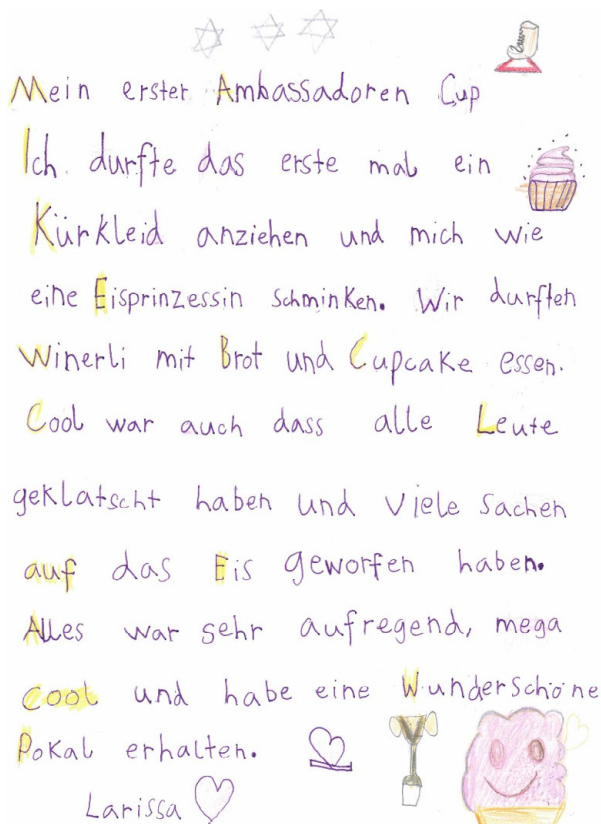 Mein erster Ambassadoren Cup
Ich durfte das erste mal ein
Kürkleid anziehen und mich wie
eine Eisprinzessin schminken. Wir durften
Winerli mit Brot und Cupcake essen.
Cool war auch dass alle Leute
geklatscht haben und viele Sachen
auf das Eis geworfen haben.
Alles war sehr aufregend, mega
cool und habe eine Wunderschöne
Pokal erhalten.
Larissa